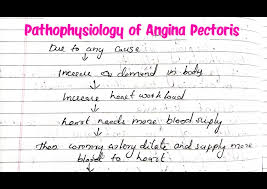 Pathophysiology of Angina Pectoris
Due to any cause
Increase O2 demand in body
Increase heart workload
heart needs more blood suply
Then coronary artery dilate and supply more
blood to heart